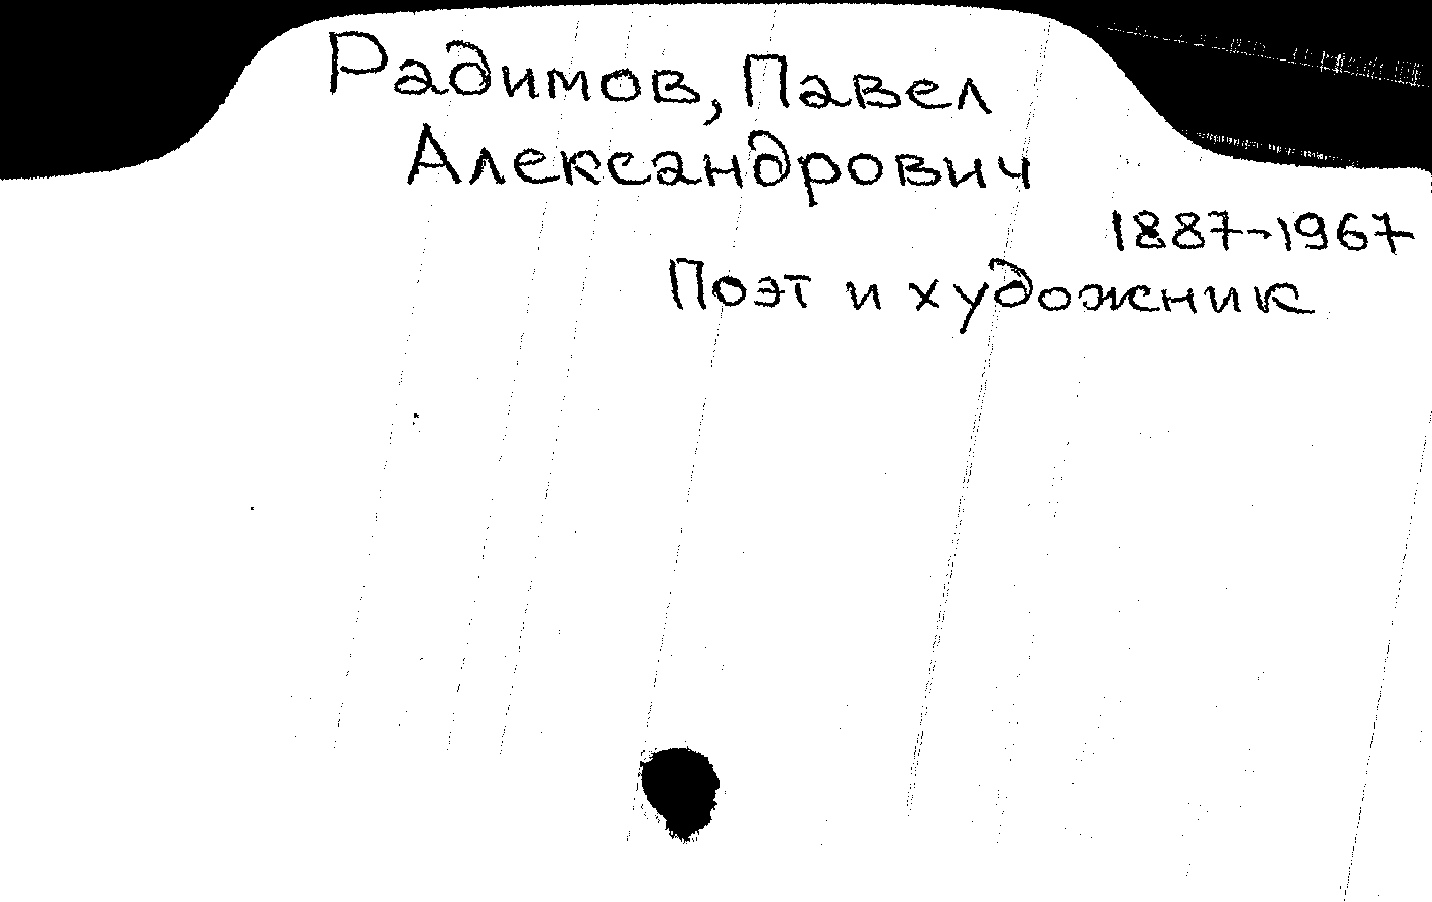 Радимов, Павел
Александрович
1887-1967
Поэт и художник